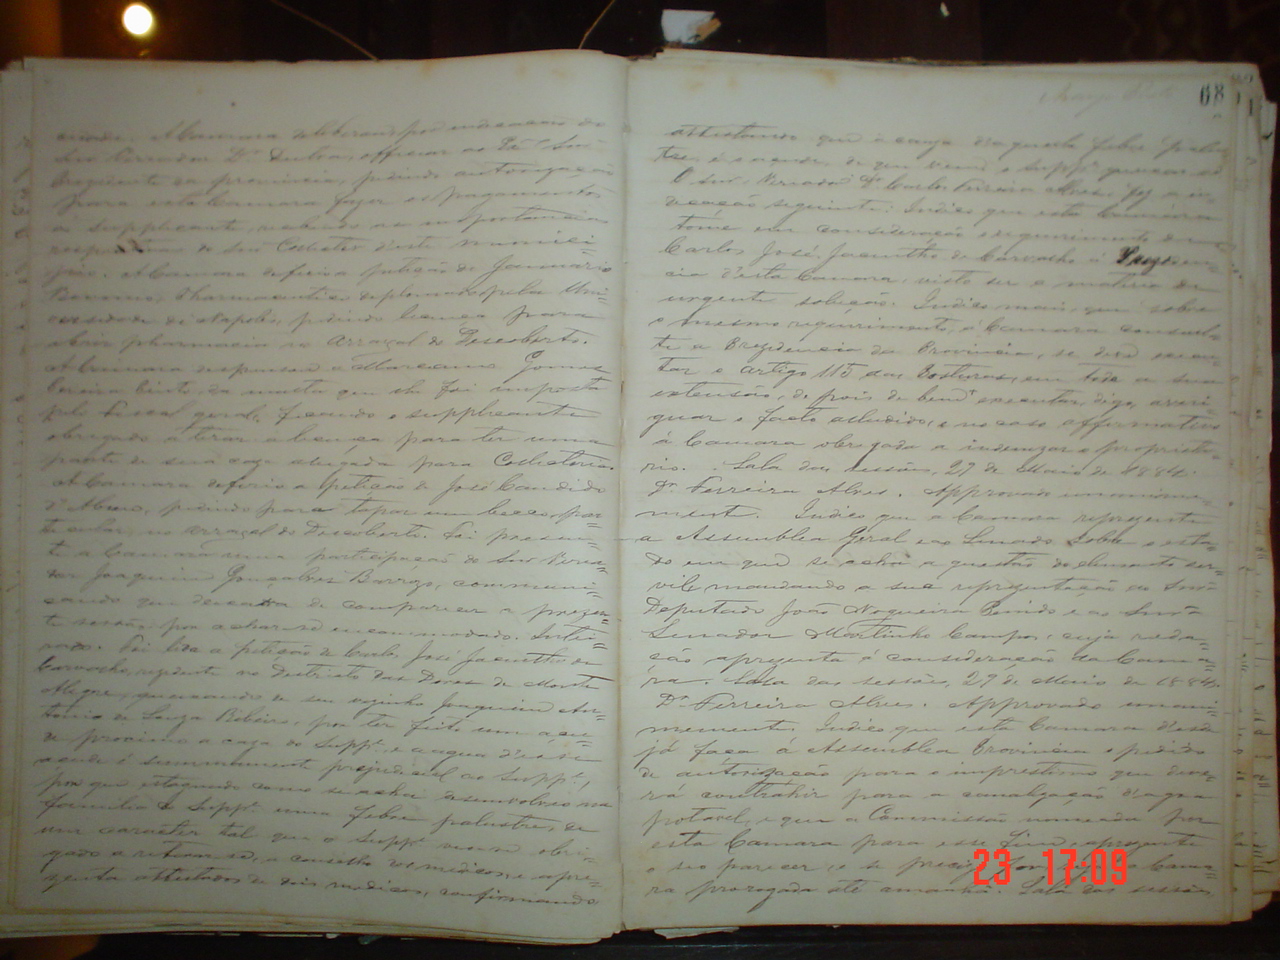 ciada. A Camara deliberou por indicação do
Snr Vereador Dr. Dulva, officiar ao Exmo Snr
Presidente da provincia, pedindo autorização
para esta Camara fazer os pagamentos
a supplicante, as importancias
do seu Collector deste munici-
pio. A Camara deferio a petição de Januario
Pharmaceutico diplomado pela Uni-
versidade de Napoles, pedindo licença para
abrir pharmacia no arraial do Descoberto.
A Camara dispensou a Marciano Gomes
Pereira Pinto, da multa que lhe foi imposta
pelo Fiscal geral, ficando o supplicante
obrigado a tirar a licença para ter uma
parte de sua caza alugada para Collectoria.
A Camara deferio a petição de José Candido
d'Abreu, pedindo para tapar um becco par-
ticular, no arraial do Descoberto. Foi presen-
te a Camara uma participação do Snr Verea-
dor Joaquim Gonçalves Barroso, communi-
cando que deixava de comparecer a prezen-
te sessão por achar-se incommodado. Intei-
rado. Foi lida a petição de Carlos José Jacintho de
Carvalho, rezidente no Districto das Dores do Monte
Alegre, queixando de seu vizinho Joaquim An-
tonio de Souza Ribeiro, por ter feito um açu-
de proximo a caza do Suppe, e a agua d'esse
açude é summamente prejudicial ao Suppe,
por que estagnado como se acha desenvolveo na
familia do Suppe uma febre palustre, de
um caracter tal que o Suppe vio-se obri-
gado a retirar-se, a conselho dos medicos, e apre-
zenta attestados de dois medicos, confirmando
68
attestando que a cauza d'aquella febre palus-
tre é o açude de que vem o suppe queixar-se
O Snr. Vereador Dr. Carlos Ferreira Alves, fez a in-
dicação seguinte: Indico que esta Camara
tome em consideração o requerimento de
Carlos José Jacintho de Carvalho á Prezi-
cia d'esta Camara, visto ser a materia de
urgente solução. Indico mais, que sobre
o mesmo requerimento, a Camara consul-
te a Prezidencia da Provincia, se deve execu-
tar o artigo 115 das Posturas, em toda a sua
extensão, depois de bem executar, digo, averi-
guar o facto alludido, e no caso affirmativo
a Camara obrigada a indenizar o proprieta-
rio. Sala das sessões, 27 de Maio de 1884.
Dr. Ferreira Alves. Approvado unanime-
mente. Indico que a Camara reprezente
a Assemblea Geral e ao Senado sobre o esta-
do em que se acha a questão do elemento ser-
vil, mandando a sua reprezentação ao Snr
Deputado João Nogueira Penido e ao Snr
Senador Martinho Campos, cuja reda-
ção aprezenta á consideração da Cama-
ra. Sala das sessões, 27 de Maio de 1884.
Dr. Ferreira Alves. Approvado unani-
memente. Indico que esta Camara desde
já faça á Assemblea Provincial o pedido
de autorização para o imprestimo que deve-
rá contrahir para a canalização d'agua
potavel, e que a Commissão nomeada por
esta Camara para esse fim, aprezente
o seo parecer, e se precizo for seja a Cama-
ra prorogada até amanhã. Sala das sessões,
23 17:09